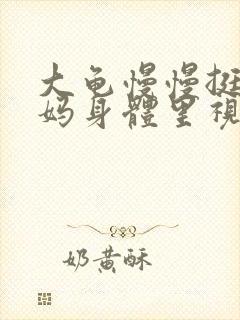 大龟慢慢挺
妈身體里視
奶黄酥